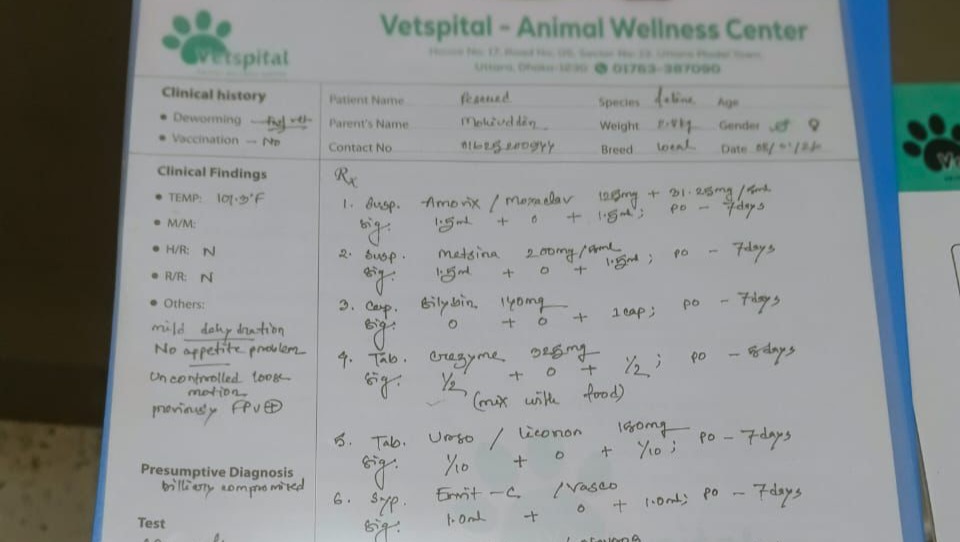 Vetspital - Animal Wellness Center
Vetspital
House No. 17, Road No.
Uttara, Dhaka-1230 01783-387090
Clinical history
Patient Name Species feline Age
Deworming
Parent's Name Mohiuddin Weight Kg Gender
Vaccination - No
Contact No Breed local Date
Clinical Findings
Rx
TEMP: °F
M/M:
H/R: N
R/R: N
Others:
mild dehydration
No appetite problem
Uncontrolled loose
motion
previously FPV ⊕
1. Susp. Amorix / Moxaclav 125mg + 31.25mg/5ml
Sig: 1.5ml + 0 + 1.5ml; PO - 7days
2. Susp. Metsina 200mg/5ml
Sig: 1.5ml + 0 + 1.5ml; PO - 7days
3. Cap. Silybin 140mg
Sig: 0 + 0 + 1cap; PO - 7days
4. Tab. 325mg
Sig: 1/2 + 0 + 1/2; PO - days
(mix with food)
5. Tab. Urso / Liconor 150mg
Sig: 1/10 + 0 + 1/10; PO - 7days
6. Syp. -C / Vasco
Sig: 1.0ml + 0 + 1.0ml; PO - 7days
Presumptive Diagnosis
compromised
Test